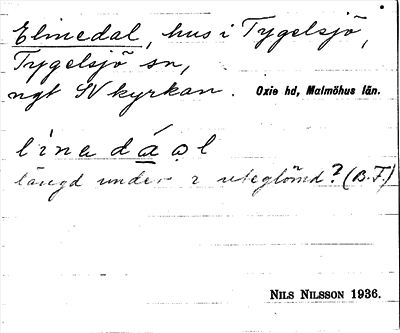 Elinedal, hus i Tygelsjö,
Tygelsjö sn,
ngt SV kyrkan. Oxie hd, Malmöhus län.
línedáal
längd under 2 uteglömd? (B.F.)
NILS NILSSON 1936.